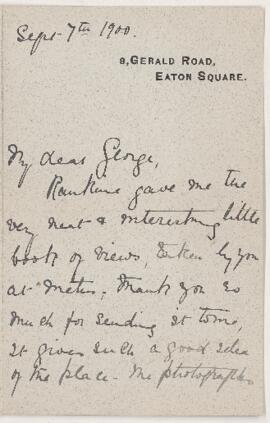 Sept 7th 1900.
8, GERALD ROAD,
EATON SQUARE.
My dear George,
Rankine gave me the
very neat & interesting little
book of views, taken by you
at Metus. Thank you so
much for sending it to me,
it gives such a good idea
of the place - The photographs